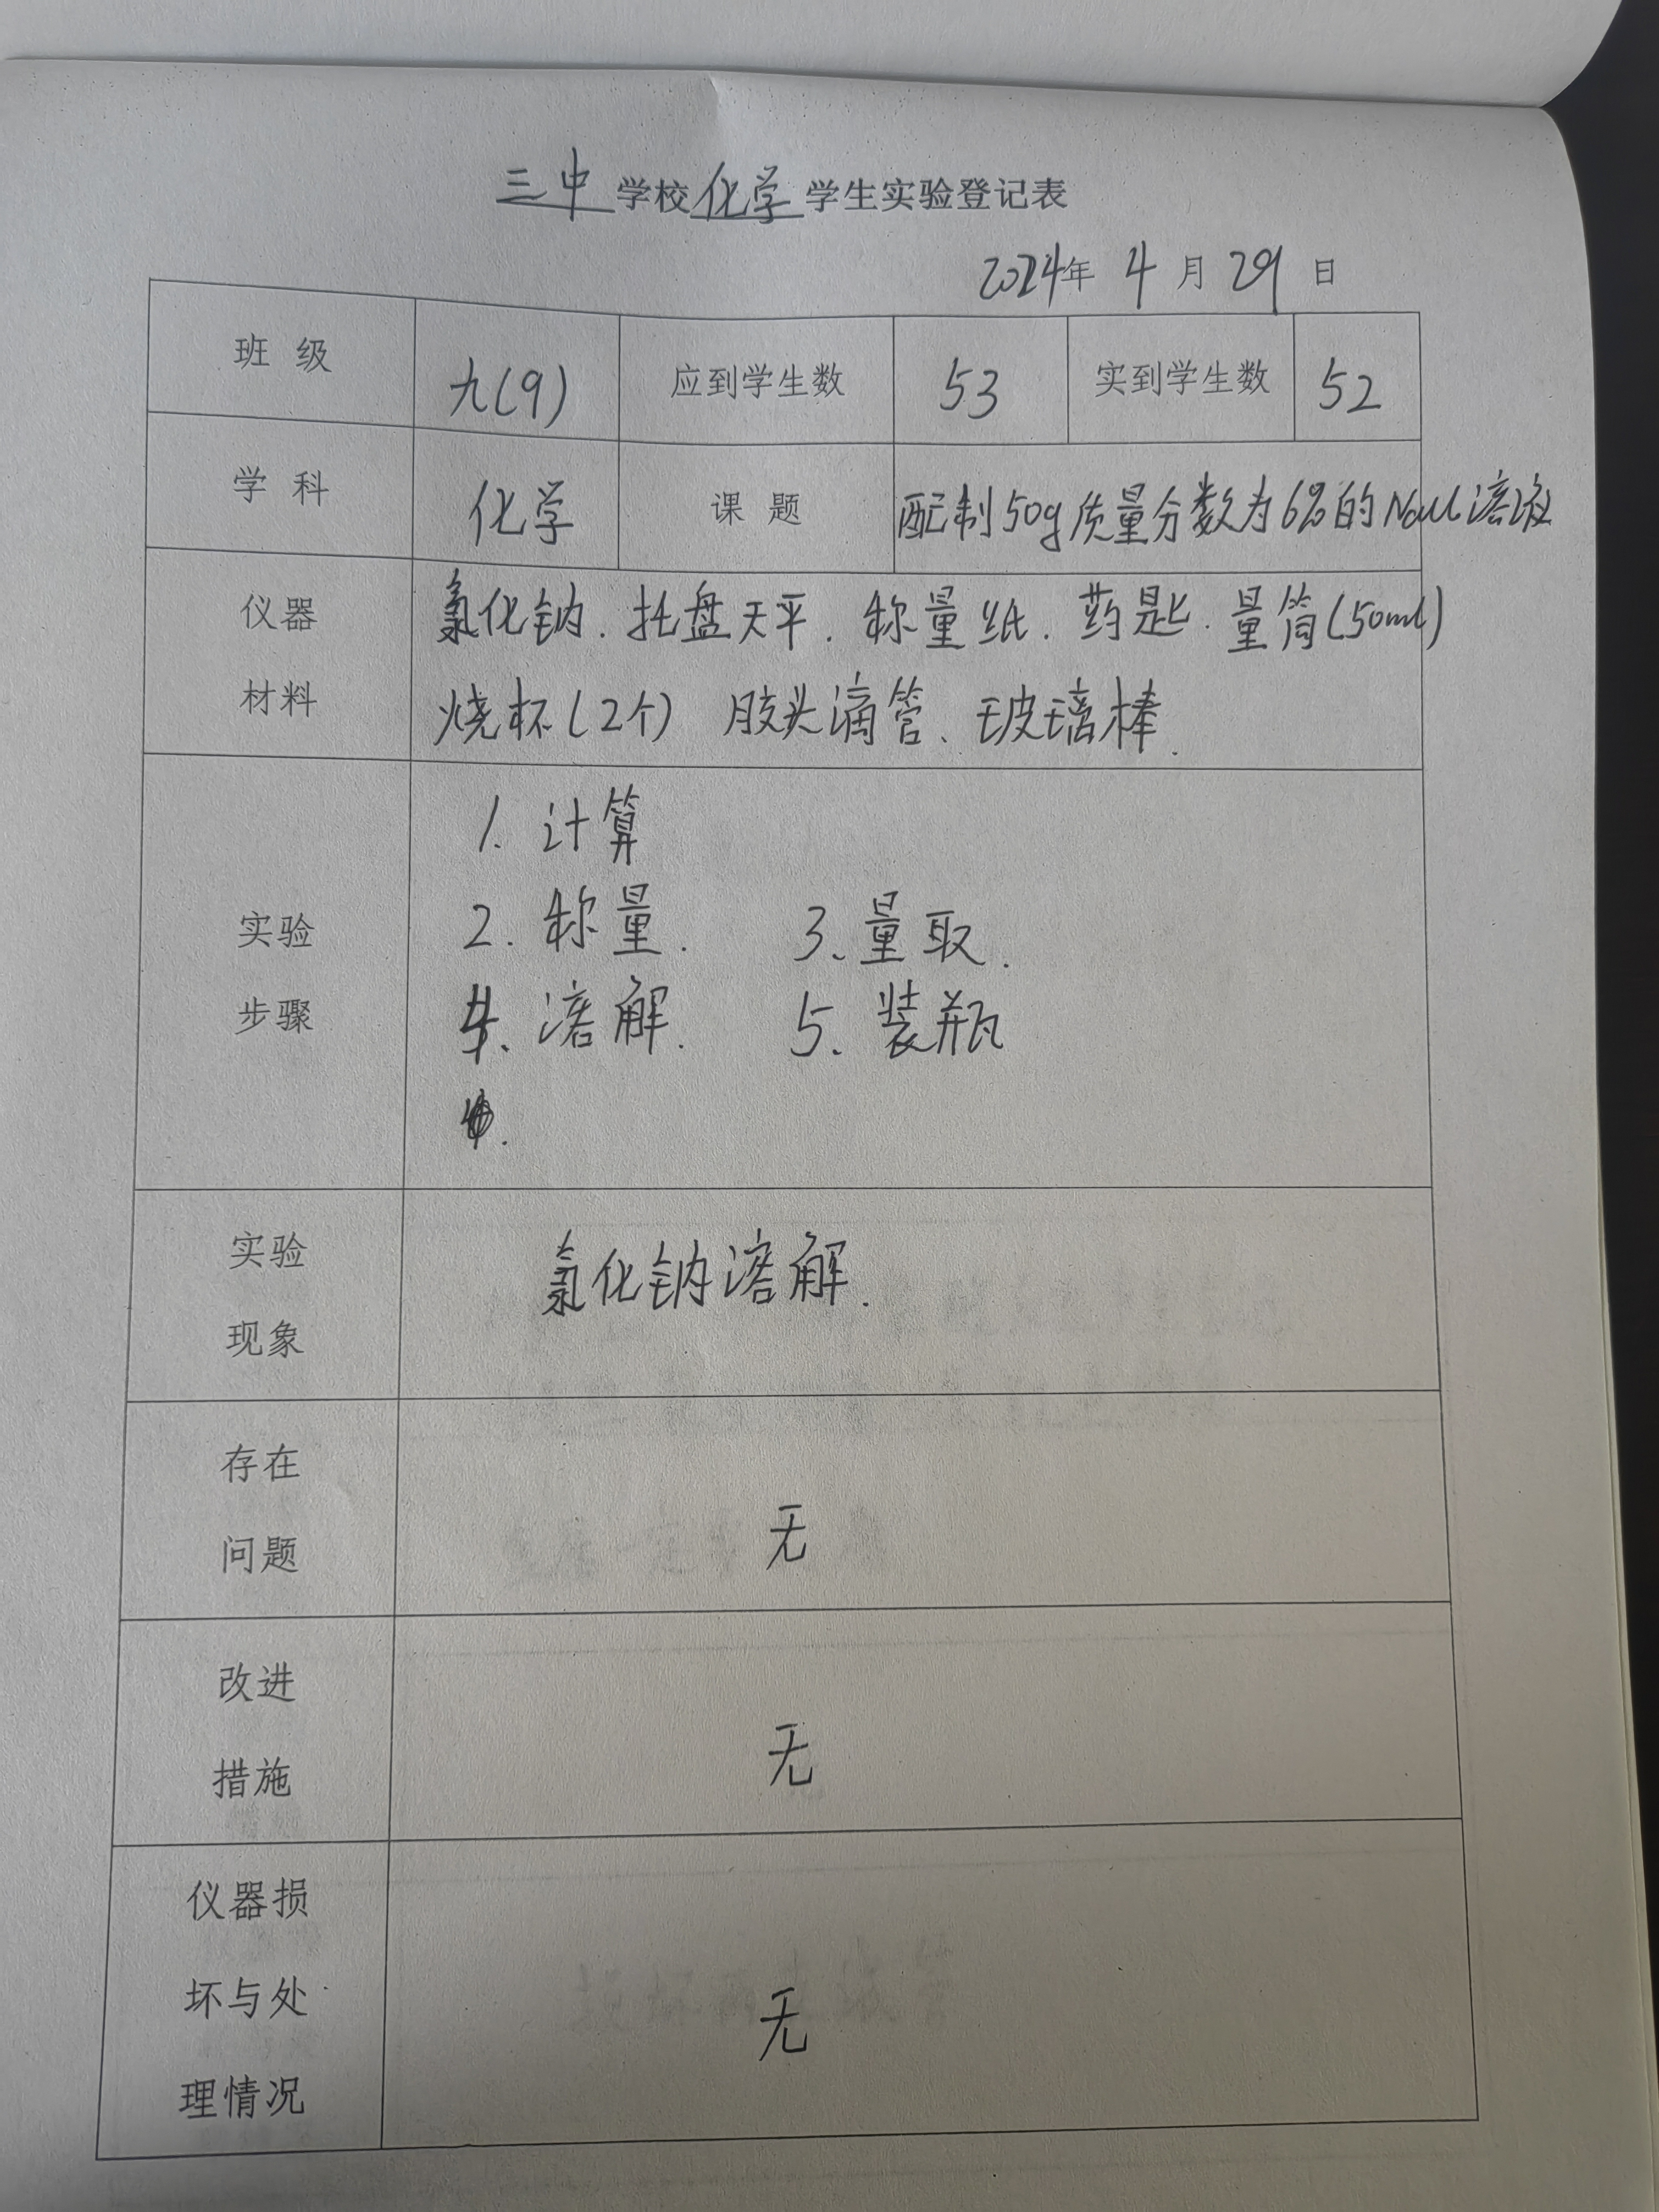 三中学校化学学生实验登记表
2024年4月29日
班 级 九(9) 应到学生数 53 实到学生数 52
学 科 化学 课 题 配制50g质量分数为6%的NaCl溶液
仪器 氯化钠.托盘天平.称量纸.药匙.量筒(50ml)
材料 烧杯(2个) 胶头滴管、玻璃棒.
1.计算
2.称量. 3、量取.
实验
步骤
4、溶解. 5、装瓶
实验
现象
氯化钠溶解.
存在
问题
无
改进
措施
无
仪器损
坏与处
理情况
无